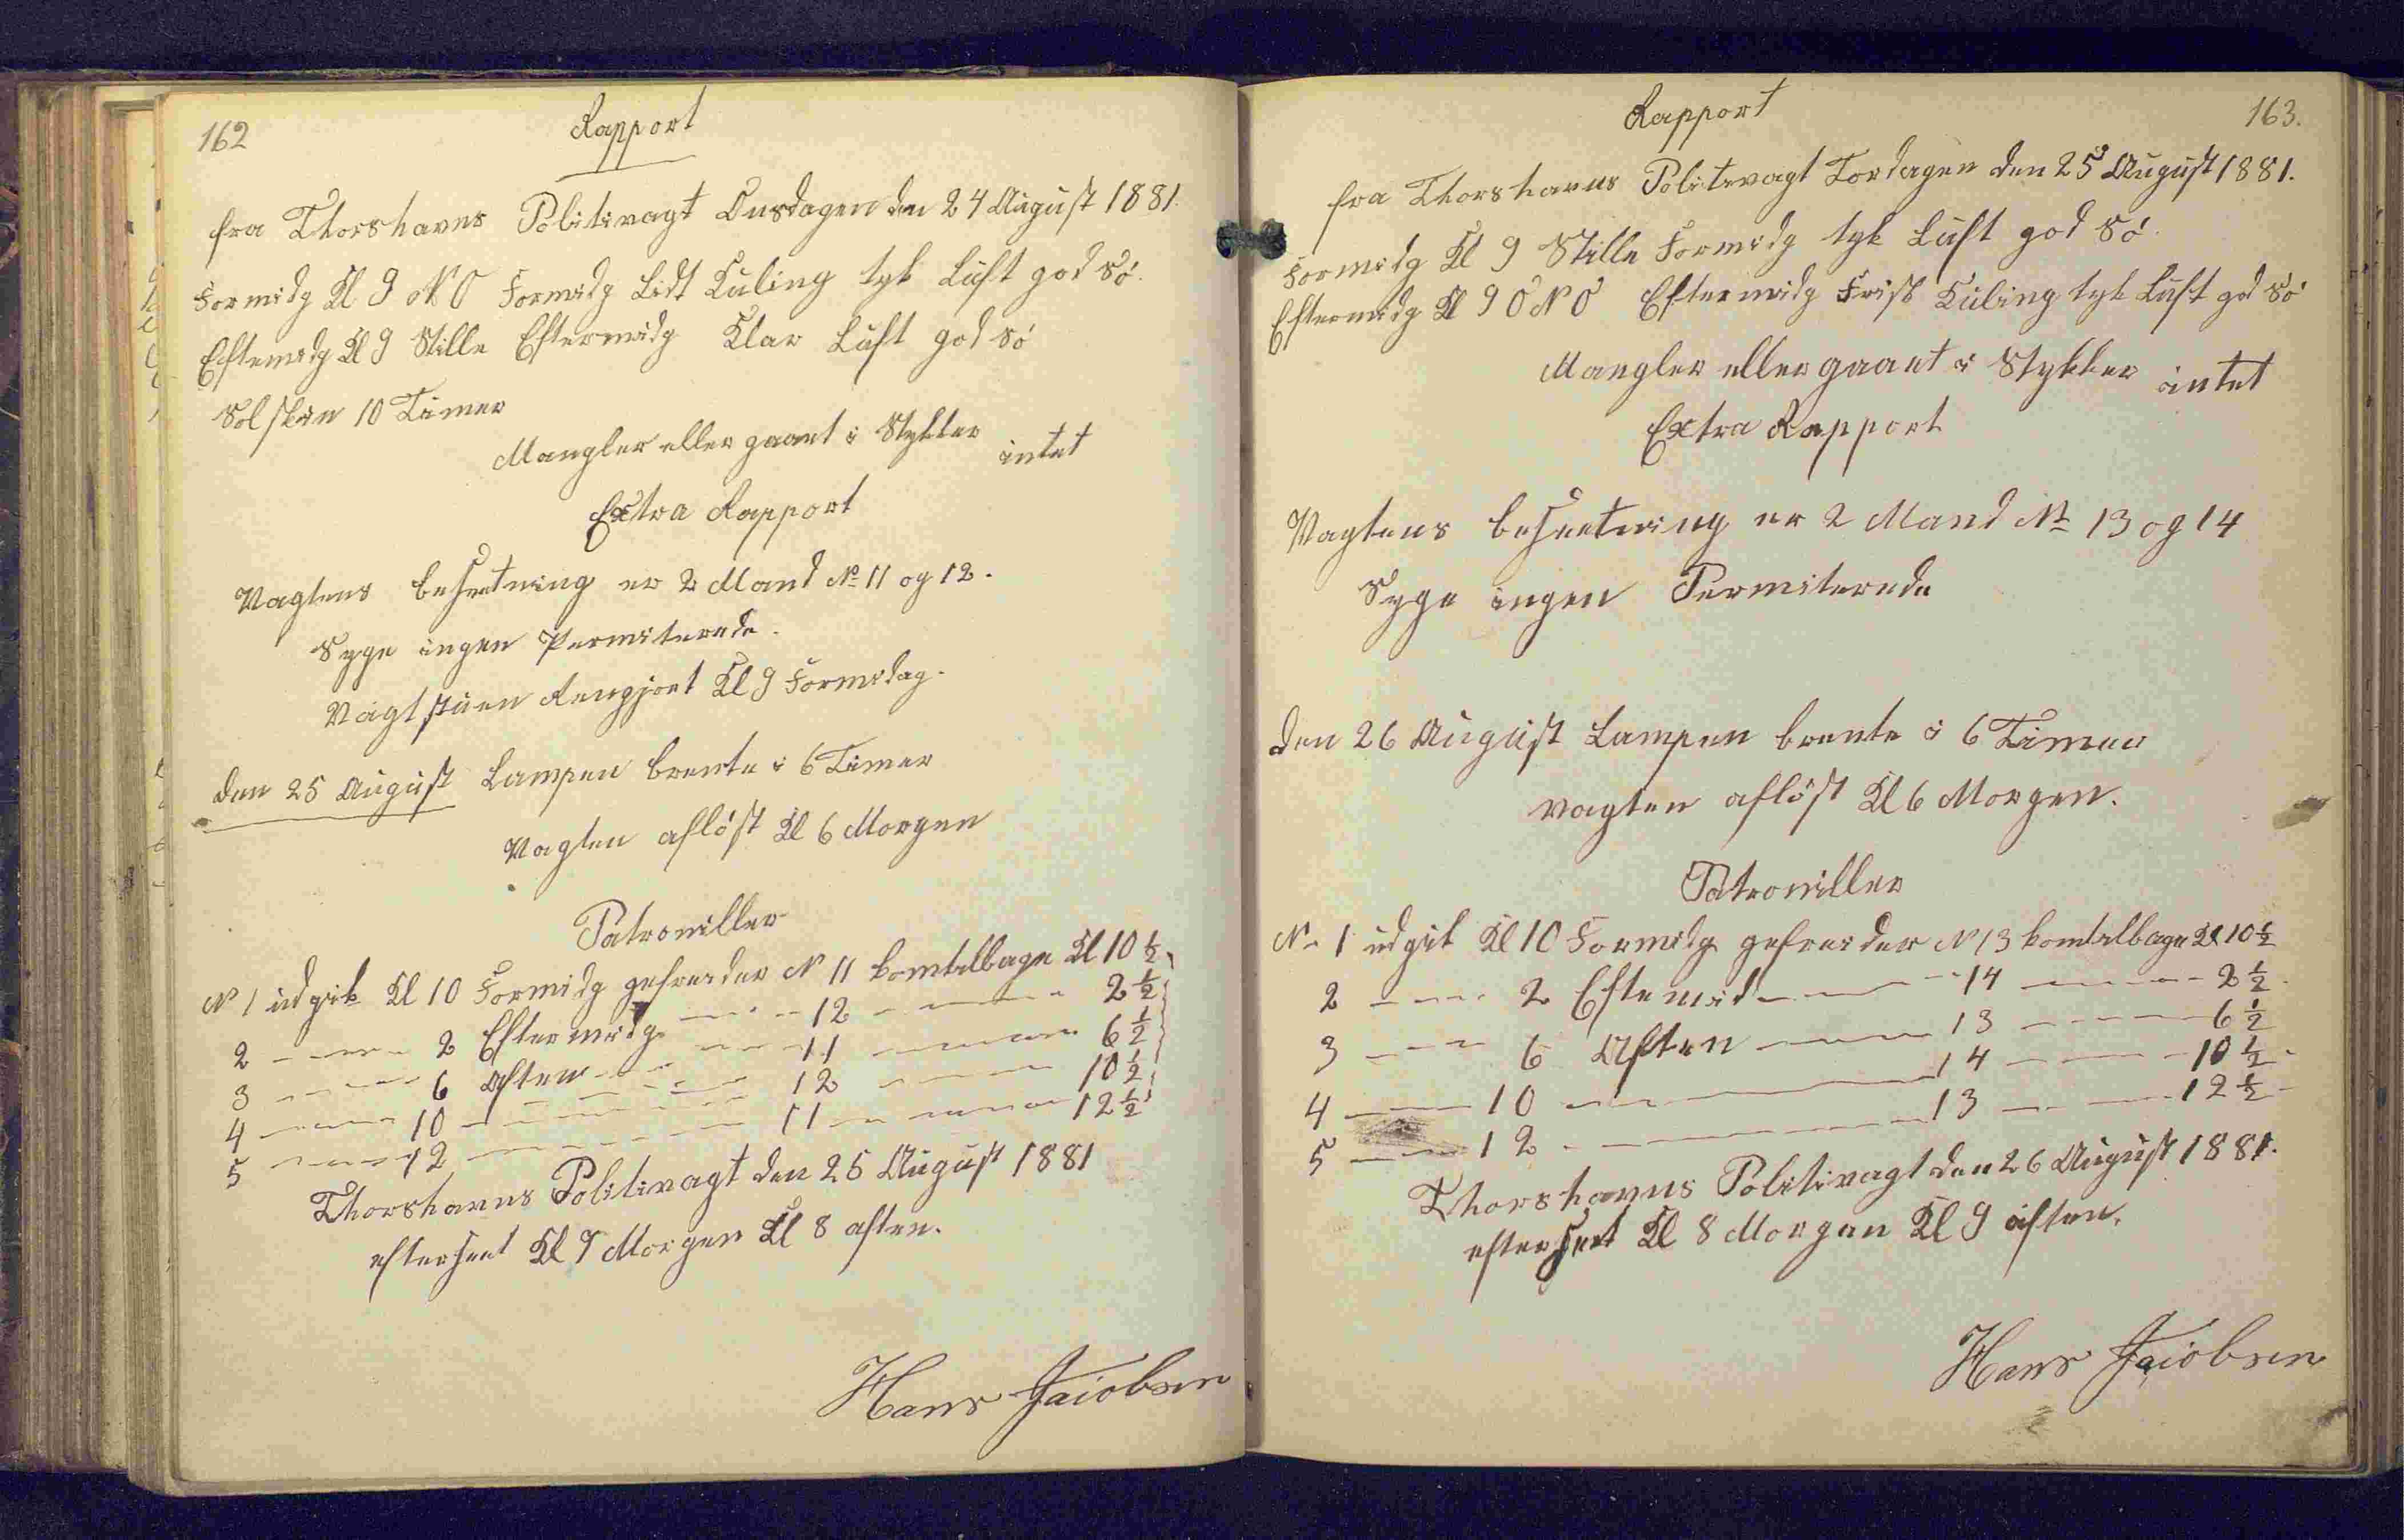 162
Rapport
fra Thorshavns Politivagt Onsdagen den 24 August 1881.
Formidg Kl 9 N O Formidg Lidt Kuling tyk Luft god Sö.
Eftemidg Kl 9 Stille Eftermidg Klar Luft god Sö
Solskin 10 Timer
Mangler eller gaaet i Stykker intet
Extra Rapport
Vagtens besætning er 2 Mand No 11 og 12.
Syge ingen Permiterede.
Vagtstuen Rengjort Kl 9 Formidag.
den 25 August Lampen brente i 6 Timer
Vagten aflöst Kl 6 Morgen
Patroniller
N 1 udgik Kl 10 Formidg gefreider N 11 komtilbage Kl 10 ½
2 — 2 Eftermidg — 12 — 2 ½
3 — 6 Aften — 11 — 6 ½
4 — 10 — 12 — 10 ½
5 — 12 — 11 — 12 ½
Thorshavns Politivagt den 25 August 1881
efterseet Kl 9 Morgen Kl 8 aften.
Hans Jacobsen
163.
Rapport
fra Thorshavns Politivagt Tordagen den 25 August 1881.
Formidg Kl 9 Stille Formidg tyk Luft god Sö.
Eftermidg Kl 9 O N O Eftermidg Frisk Kuling tyk Luft god Sö
Mangler eller gaaet i Stykker intet
Extra Rapport
Vagtens besætning er 2 Mand No 13 og 14
Syge ingen Permiterede
den 26 August Lampen brente i 6 Timer
vagten aflöst Kl 6 Morgen.
Patroniller
N. 1 udgik Kl 10 Formidg gefreider N 13 komtilbage Kl 10 ½
2 — 2 Eftemid — 14 — 2 ½
3 — 6 Aften — 13 — 6 ½
4 — 10 — 14 — 10 ½
5 — 12 — 13 — 12 ½
Thorshavns Politivagt den 26 August 1881.
efterseet Kl 8 Morgen Kl 9 aften.
Hans Jacobsen